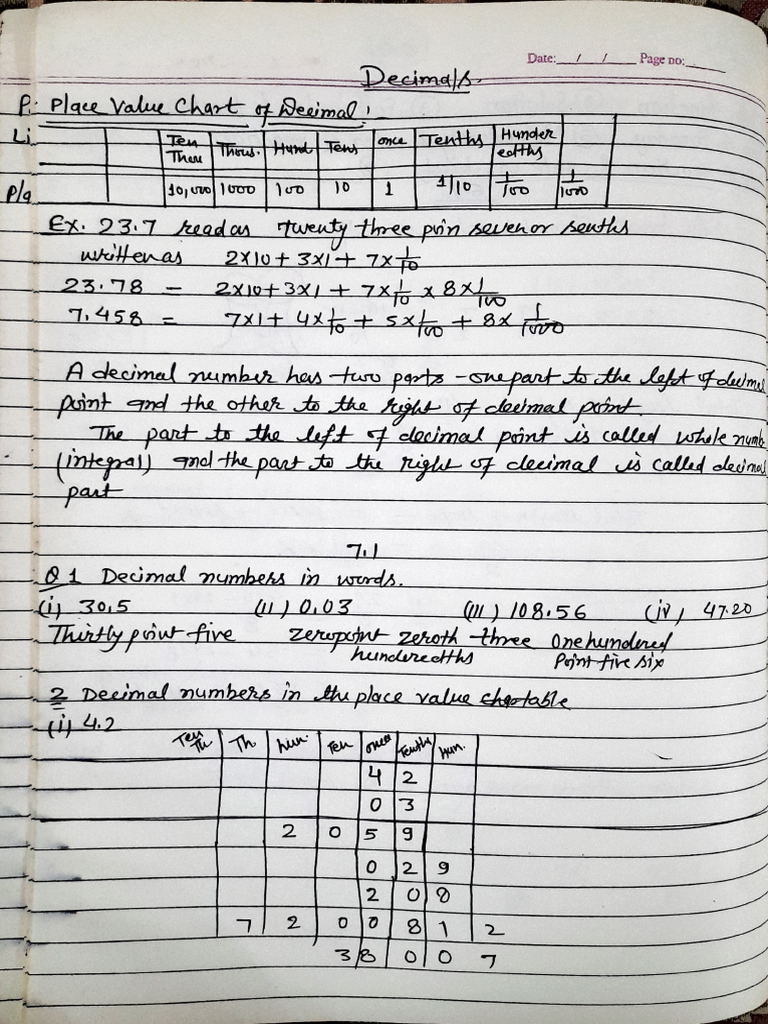 Date: __/__/__ Page no: ____
Decimals.
P: Place Value Chart of Decimal :
Li Ten Thou Thous. Hund Tens once Tenths Hunder edths
P/a 10,000 1000 100 10 1 1/10 1/100 1/1000
Ex. 23.7 read as Twenty three poin seven or seuths
written as 2×10 + 3×1 + 7×1/10
23.78 = 2×10+3×1 + 7×1/10 × 8×1/100
7.458 = 7×1 + 4×1/10 + 5×1/100 + 8× 1/1000
A decimal number has two parts - one part to the left of decimal
point and the other to the right of decimal point.
The part to the left of decimal point is called whole numb
(integral) and the part to the right of decimal is called decimal
part
7.1
Q 1 Decimal numbers in words.
(i) 30.5 (ii) 0.03 (iii) 108.56 (iv) 47.20
Thirtly point five zero point zeroth three One hundered
hunderedths Point five six
2 Decimal numbers in the place value table
(i) 4.2
Ten Th Th hun. Ten once Tenths Hun.
4 2
0 3
2 0 5 9
0 2 9
2 0 8
7 2 0 0 8 1 2
3 8 0 0 7